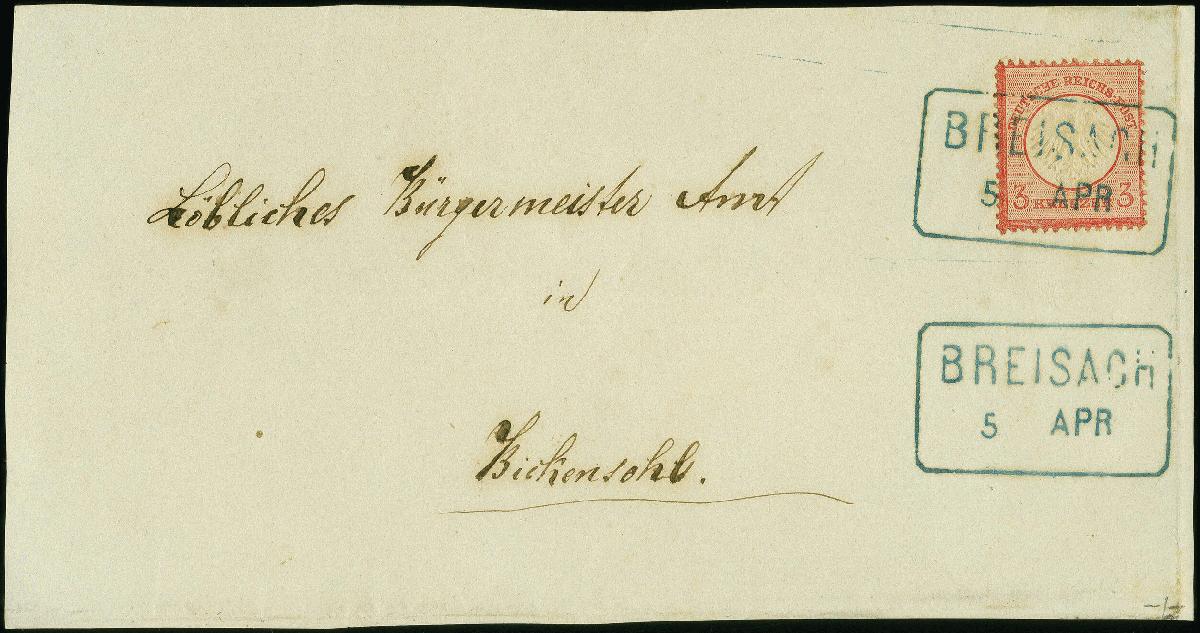 DEUTSCHE REICHS-POST
3 KREUZER 3
BREISACH
5 APR
Löbliches Bürgermeister Amt
in
Bickensohl.
BREISACH
5 APR